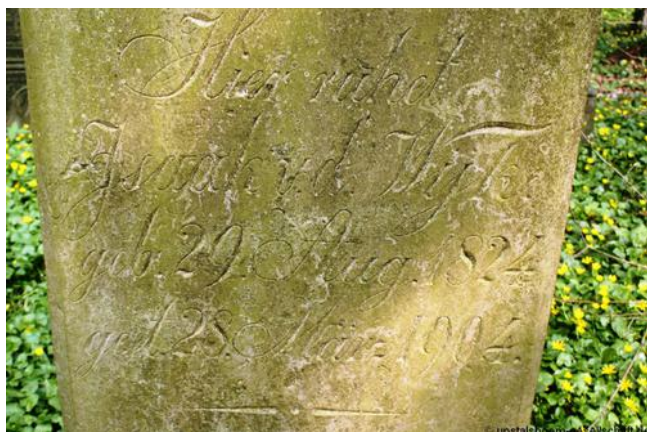 Hier ruhet
Isaak v.d. Wyk
geb. 29. Aug. 1824
gest. 28. März 1904.